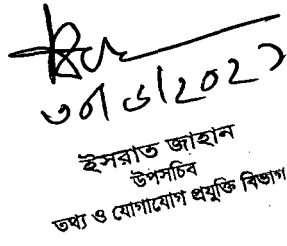 ৩০/৬/২০২১
ইসরাত জাহান
উপসচিব
তথ্য ও যোগাযোগ প্রযুক্তি বিভাগ